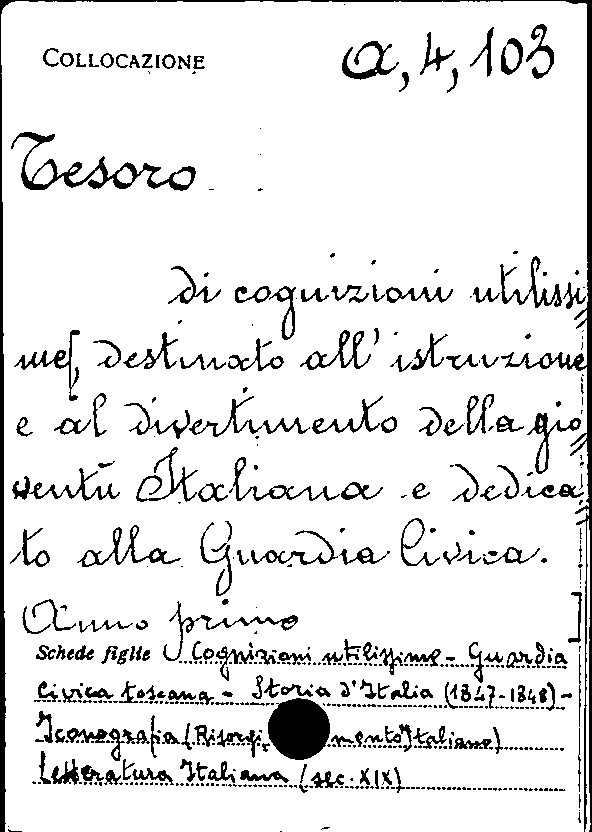 COLLOCAZIONE a, 4, 103
Tesoro
di cognizioni utilissi
me, destinato all' istruzione
e al divertimento della gio
ventù Italiana e dedica
to alla Guardia Civica.
Anno primo ]
Schede figlie Cognizioni utilissime - Guardia
Civica toscana - Storia d'Italia (1847-1848) -
Iconografia (Risorgi mento Italiano)
Letteratura Italiana (sec. XIX)